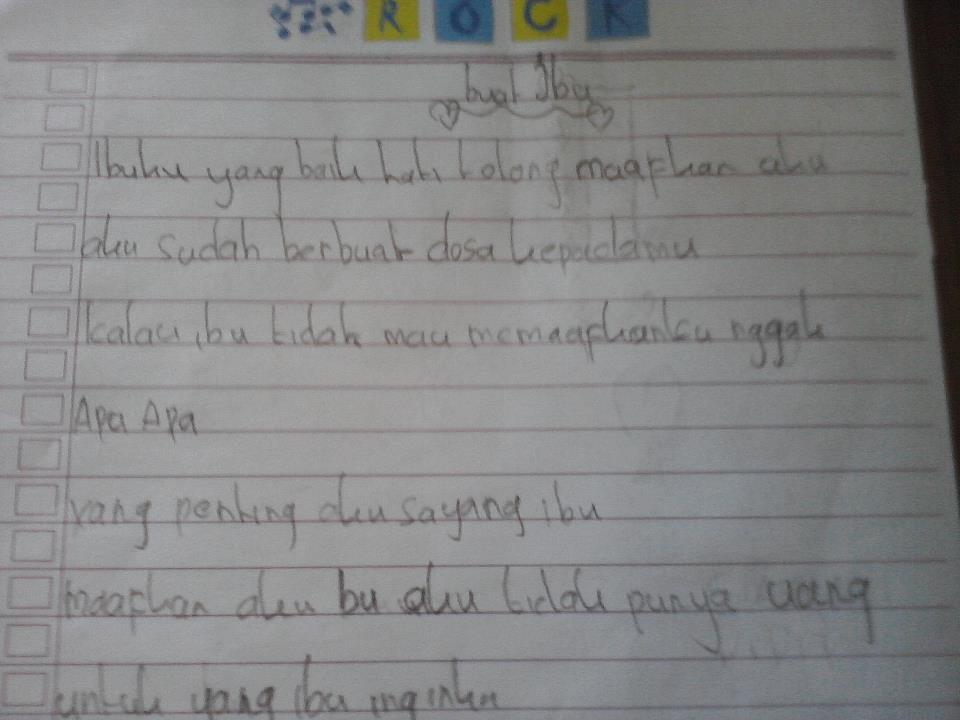 ROCK
buat Ibu
Ibuku yang baik hati tolong maafkan aku
aku sudah berbuat dosa kepadamu
kalau ibu tidak mau memaafkanku nggak
Apa Apa
yang penting aku sayang ibu
maafkan aku bu aku tidak punya uang
untuk yang ibu inginkn